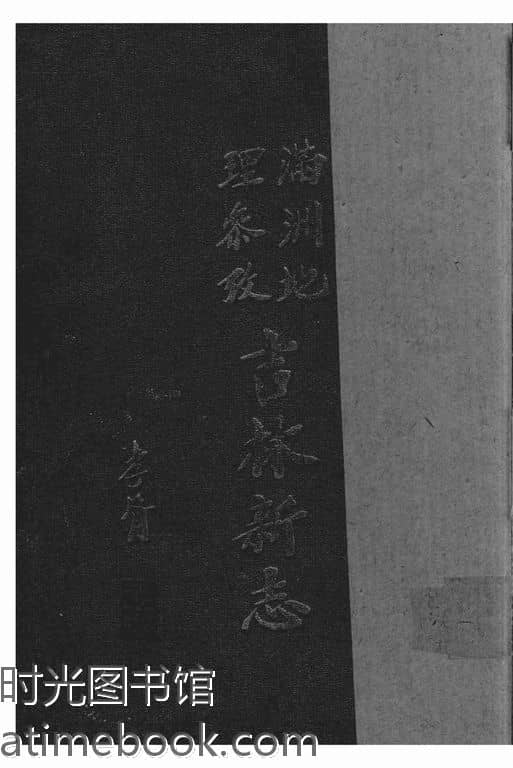 滿洲地
理參攷
吉林新志
李宵
时光图书馆
atimebook.com